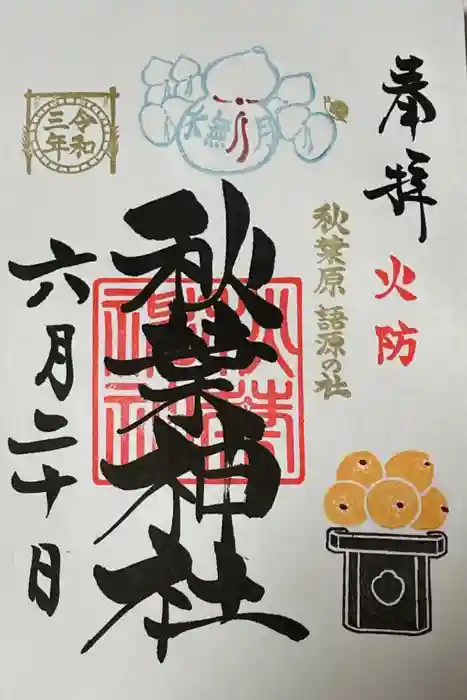 奉拝
火防
秋葉原 語源の社
水無月
秋葉神社
令和
三年
六月二十日